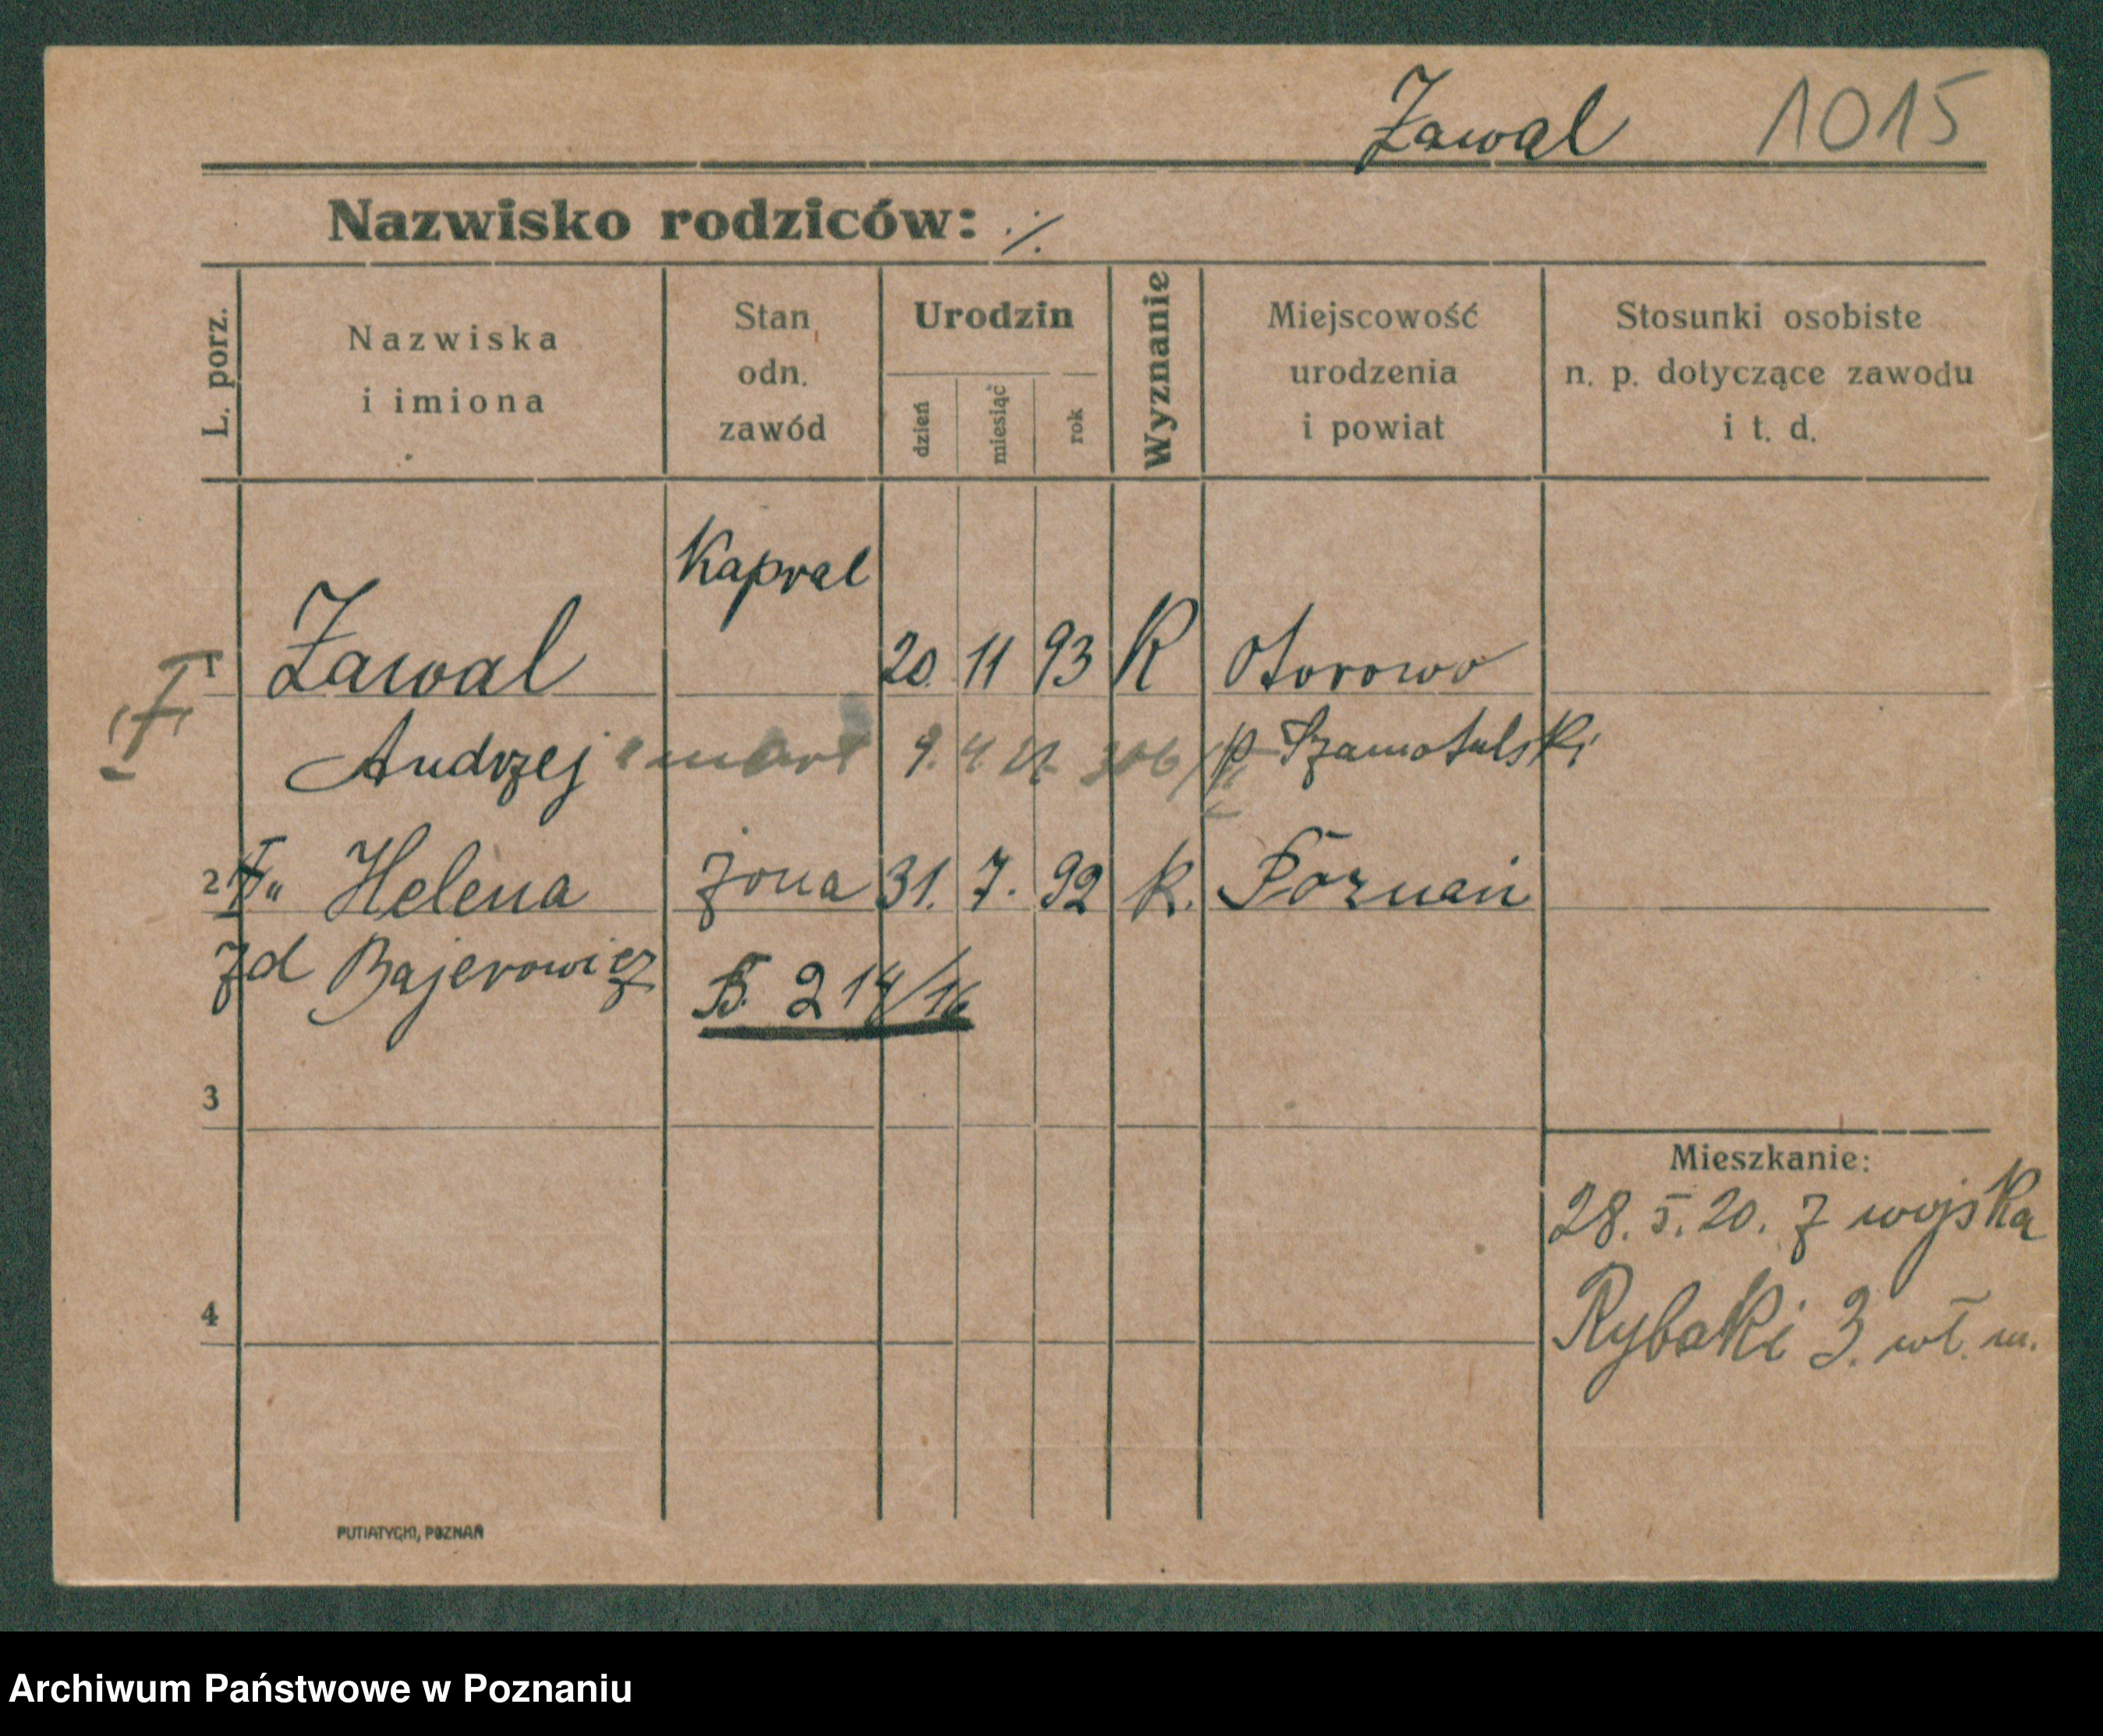 Zawal 1015
Nazwisko rodziców: ./.
L. porz.
Nazwiska
i imiona
Stan
odn.
zawód
Urodzin
dzień
miesiąc
rok
Wyznanie
Miejscowość
urodzenia
i powiat
Stosunki osobiste
n. p. dotyczące zawodu
i t. d.
Kapral
1 Zawal 20. 11 93 K Otorowo
Andrzej 9. 4. p Szamotulski
2 " Helena żona 31. 7. 92 k. Poznań
zd Bajerowicz B. 214/16
3
4
Mieszkanie:
28. 5. 20. z wojska
Rybaki 3. wł. m.
PUTIATYCKI, POZNAŃ
Archiwum Państwowe w Poznaniu